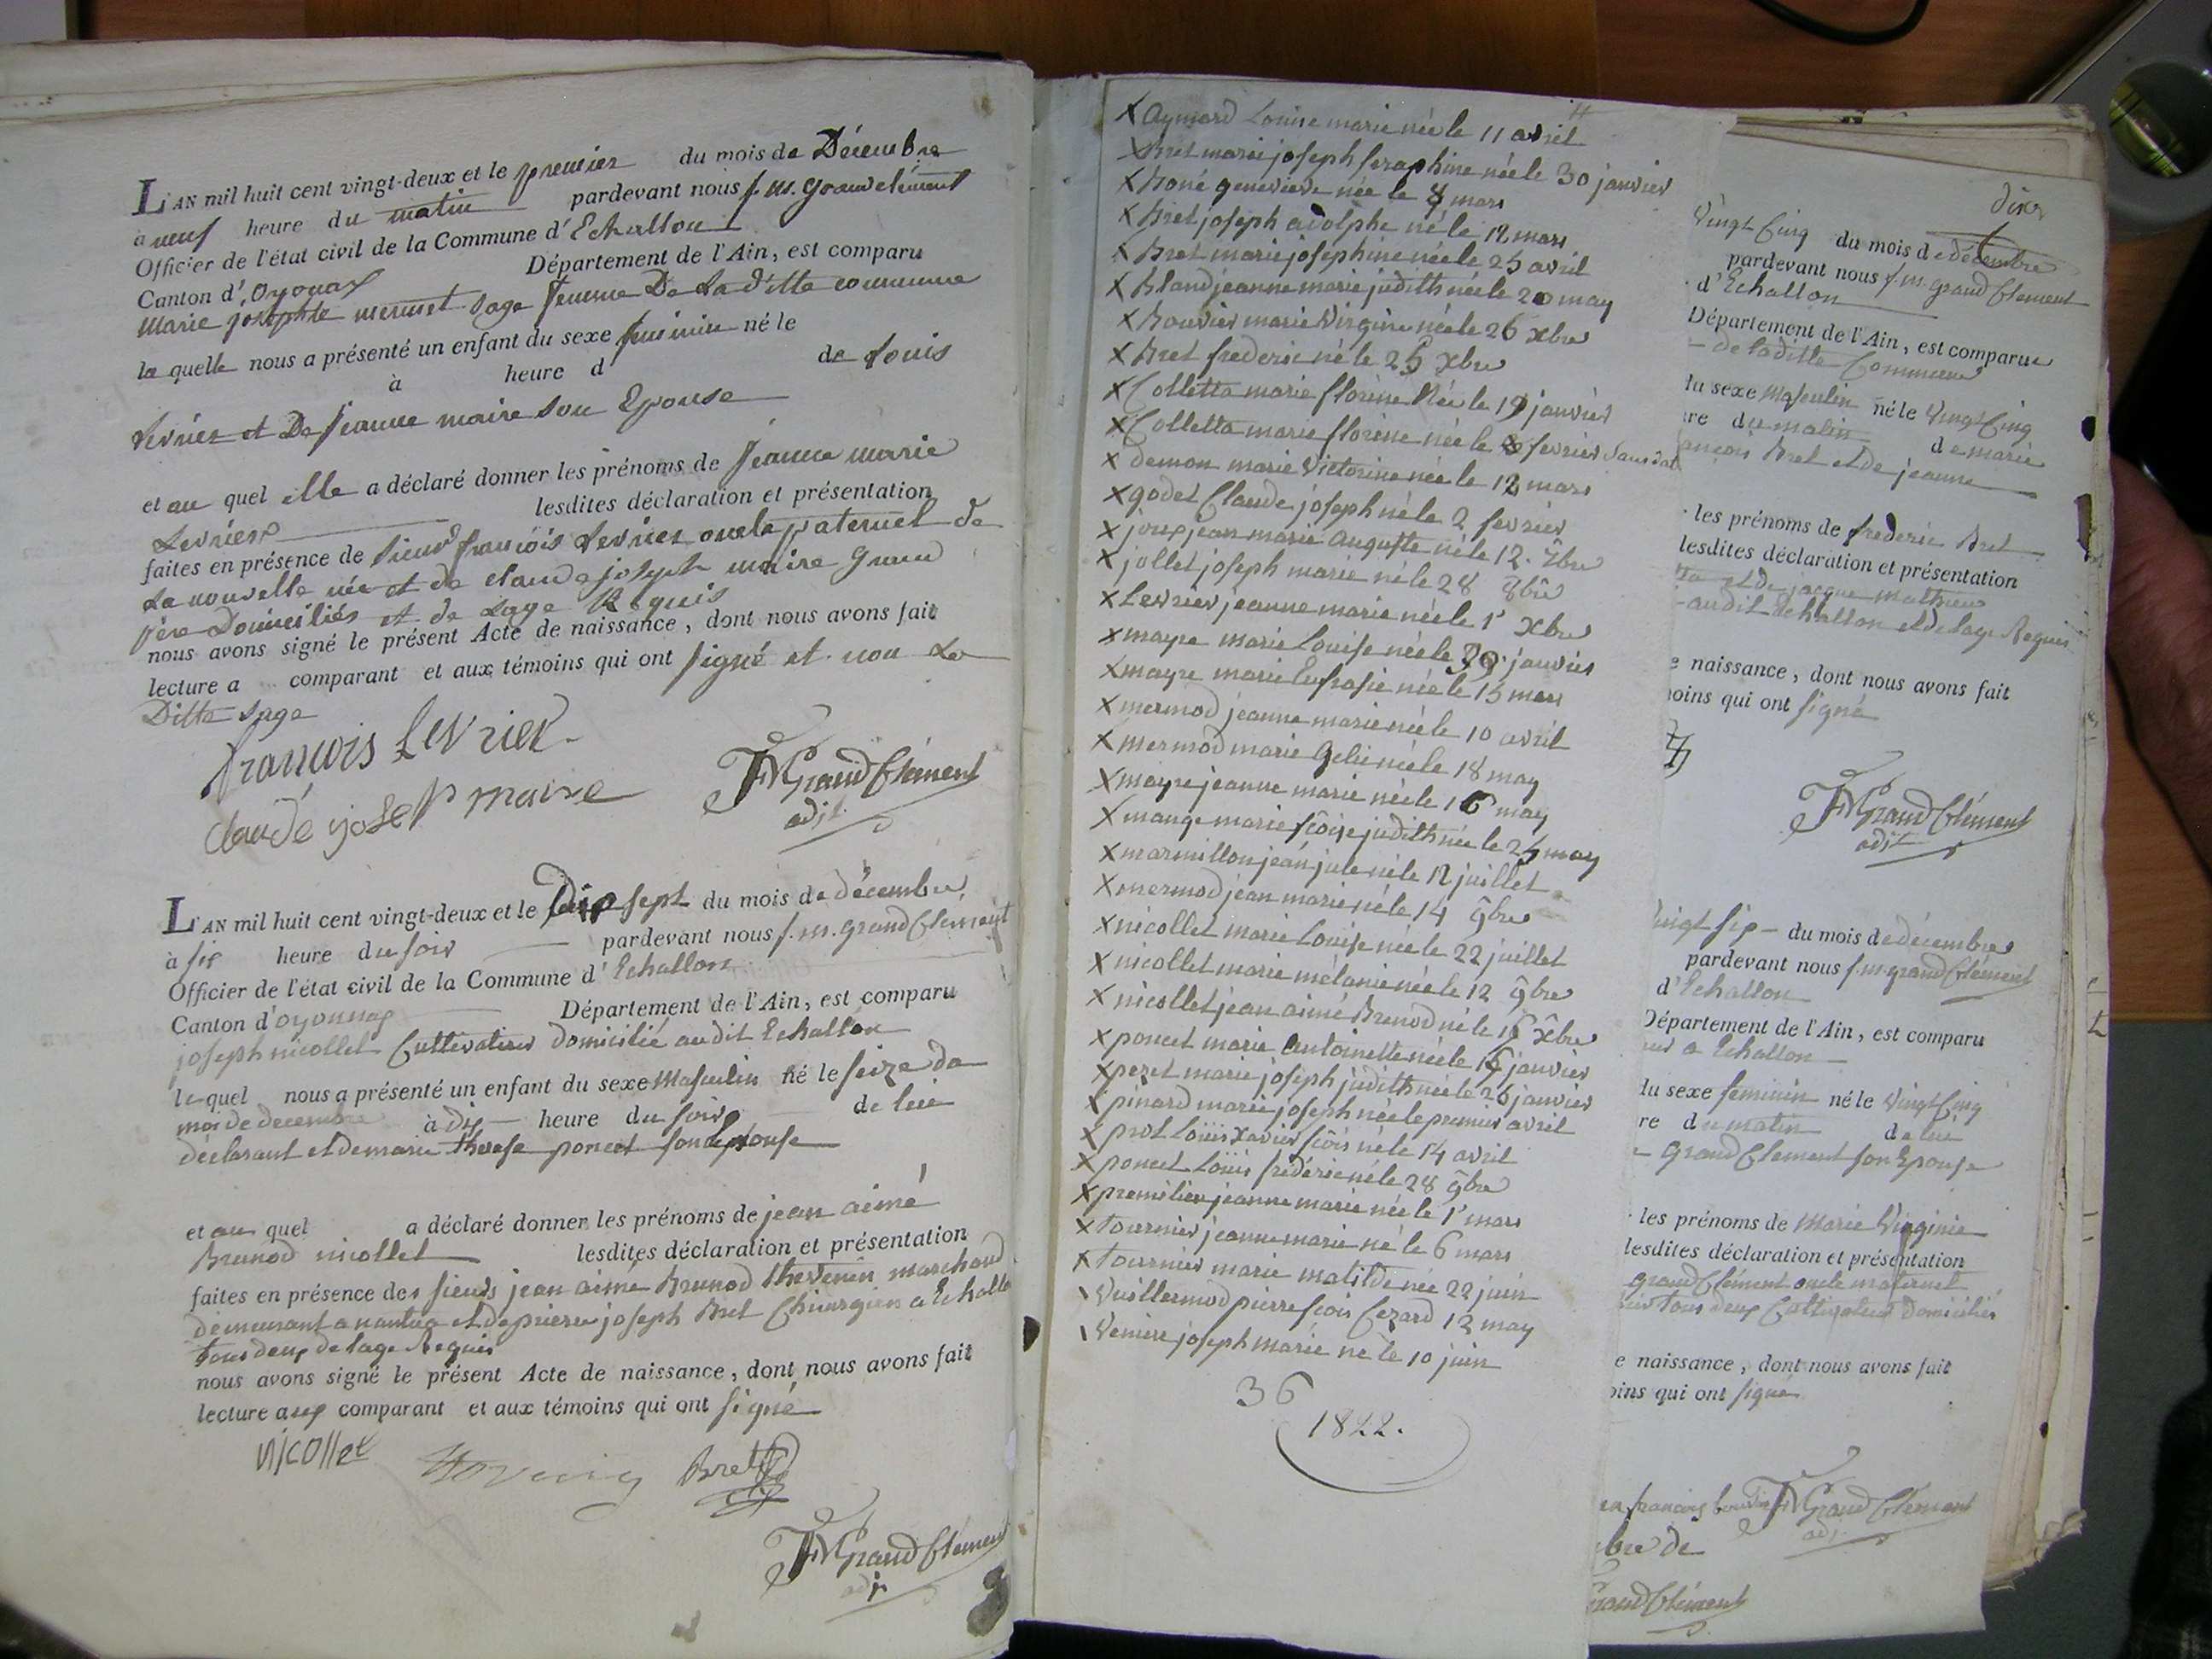 L'AN mil huit cent vingt-deux et le premier du mois de Décembre
à neuf heure du matin pardevant nous f. m. grandclément
Officier de l'état civil de la Commune d'Echallon
Canton d'Oyonax Département de l'Ain, est comparu
Marie josephte mermet sage femme De La ditte commune
la quelle nous a présenté un enfant du sexe feminin né le
à heure d de Louis
Levrier et De jeanne maire son Epouse
et au quel elle a déclaré donner les prénoms de Jeanne marie
Levrier lesdites déclaration et présentation
faites en présence de Sieur françois Levrier oncle paternel de
La nouvelle née et de claude joseph maire Grand
père Domiciliés et de Lage Requis
nous avons signé le présent Acte de naissance, dont nous avons fait
lecture a comparant et aux témoins qui ont signé et non La
Ditte sage
françois Levrier
claude joseph maire
FMGrandClément
adjt
L'AN mil huit cent vingt-deux et le dix sept du mois de décembre
à six heure du soir pardevant nous f. m. grandClément
Officier de l'état civil de la Commune d'Echallon
Canton d'oyonnax Département de l'Ain, est comparu
joseph nicollet Cultivateur domicilié audit Echallon
lequel nous a présenté un enfant du sexe Masculin né le seize du
mois de decembre à dix heure du soir de lui
déclarant et de marie therese poncet son epouse
et au quel a déclaré donner les prénoms de jean aimé
Brunod nicollet lesdites déclaration et présentation
faites en présence des sieurs jean aimé Brunod thevenin marchand
demeurant a nantua et de pierre joseph Bret Chirurgien a Echallon
tous deux de lage Requis
nous avons signé le présent Acte de naissance, dont nous avons fait
lecture aux comparant et aux témoins qui ont signé
Nicollet Bret
FMGrandClément
adjt
X Aymard Louise marie née le 11 avril
X Bret marie joseph seraphine née le 30 janvier
X Boné genevieve née le 8 mars
X Bret joseph adolphe né le 12 mars
X Bret marie josephine née le 25 avril
X Bland jeanne marie judith née le 20 may
X Bouvier marie Virginie née le 26 xbre
X Bret frederic né le 25 xbre
X Colletta marie florine Née le 19 janvier
X Colletta marie florine née le 8 fevrier
X demon marie Victorine née le 12 mars
X godet Claude joseph né le 2 fevrier
X joux jean marie auguste né le 12 9bre
X jollet joseph marie né le 28 8bre
X Levrier jeanne marie née le 1r xbre
X mayre marie Louise née le 30 janvier
X mayre marie Eufrasie née le 15 mars
X mermod jeanne marie née le 10 avril
X mermod marie Gelie née le 18 may
X mayre jeanne marie née le 16 may
X mange marie fcoise judith née le 25 may
X marmillon jean jule né le 12 juillet
X mermod jean marie né le 14 9bre
X nicollet marie Louise née le 22 juillet
X nicollet marie mélanie née le 12 9bre
X nicollet jean aimé Brunod né le 16 xbre
X poncet marie Antoinette née le 16 janvier
X peret marie joseph judith née le 26 janvier
X pinard marie joseph née le premier avril
X prot Loüis Xavier fcois né le 14 avril
X poncet Loüis frédéric né le 28 9bre
X premilieu jeanne marie née le 1r mars
X tournier jeanne marie né le 6 mars
X tournier marie matilde née 22 juin
\ Vuillermod pierre fcois Cezard 12 may
\ Veniere joseph marie né le 10 juin
36
1822.
dix
Vingt Cinq du mois de décembre
pardevant nous f. m. grand Clement
d'Echallon
Département de l'Ain, est comparue
de laditte Commune
du sexe Masculin né le Vingt Cinq
re du matin de marie
ançois Bret et de jeanne
les prénoms de frederic Bret
lesdites déclaration et présentation
et de jacque mathieu
audit dchallon et de lage Requis
e naissance, dont nous avons fait
oins qui ont signé
FMGrandClément
adjt
Vingt six du mois de décembre
pardevant nous f. m. grandClément
d'Echallon
Département de l'Ain, est comparu
a Echallon
du sexe feminin né le Vingt Cinq
re du matin de lui
Grand Clement son Epouse
les prénoms de Marie Virginie
lesdites déclaration et présentation
grandClément oncle maternel
tous deux Cultivateurs domiciliés
e naissance, dont nous avons fait
oins qui ont signé
françois FMGrandClément
adjt
bre de
randClément